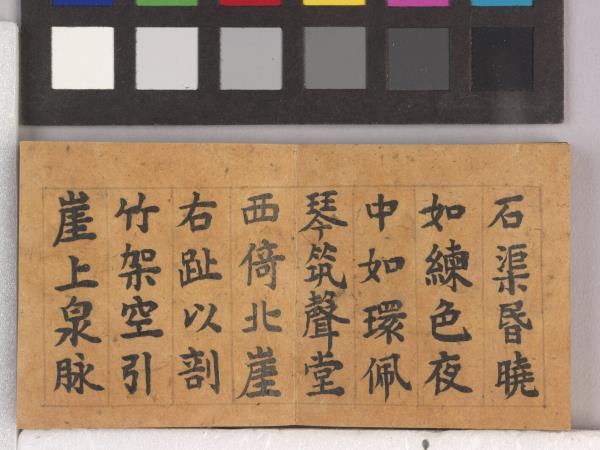 石渠昏曉
如練色夜
中如環佩
琴筑聲堂
西倚北崖
右趾以剖
竹架空引
崖上泉脉